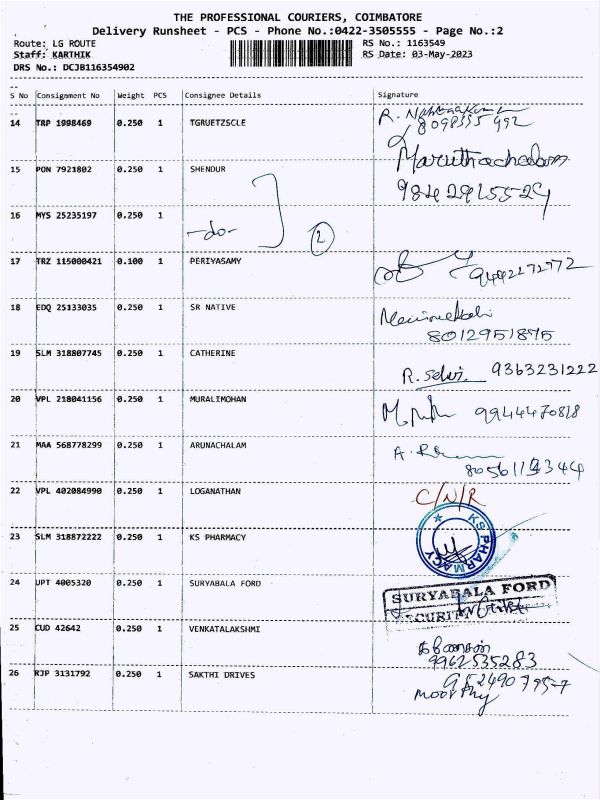 THE PROFESSIONAL COURIERS, COIMBATORE
Delivery Runsheet - PCS - Phone No.:0422-3505555 - Page No.:2
Route: LG ROUTE RS No.: 1163549
Staff: KARTHIK RS Date: 03-May-2023
DRS No.: DCJB116354902
S No Consignment No Weight PCS Consignee Details Signature
14 TRP 1998469 0.250 1 TGRUETZSCLE R.
Maruthachalam
15 PON 7921802 0.250 1 SHENDUR
16 MYS 25235197 0.250 1 -do- 2
17 TRZ 115000421 0.100 1 PERIYASAMY
18 EDQ 25133035 0.250 1 SR NATIVE
8012951875
19 SLM 318807745 0.250 1 CATHERINE
R. Selvi. 9363231222
20 VPL 218041156 0.250 1 MURALIMOHAN 9944470818
21 MAA 568778299 0.250 1 ARUNACHALAM A.
22 VPL 402084990 0.250 1 LOGANATHAN C/N/R
23 SLM 318872222 0.250 1 KS PHARMACY KS PHARMACY
24 UPT 4005320 0.250 1 SURYABALA FORD SURYABALA FORD
SECURITY
25 CUD 42642 0.250 1 VENKATALAKSHMI
9962535283
26 RJP 3131792 0.250 1 SAKTHI DRIVES
Moorthy